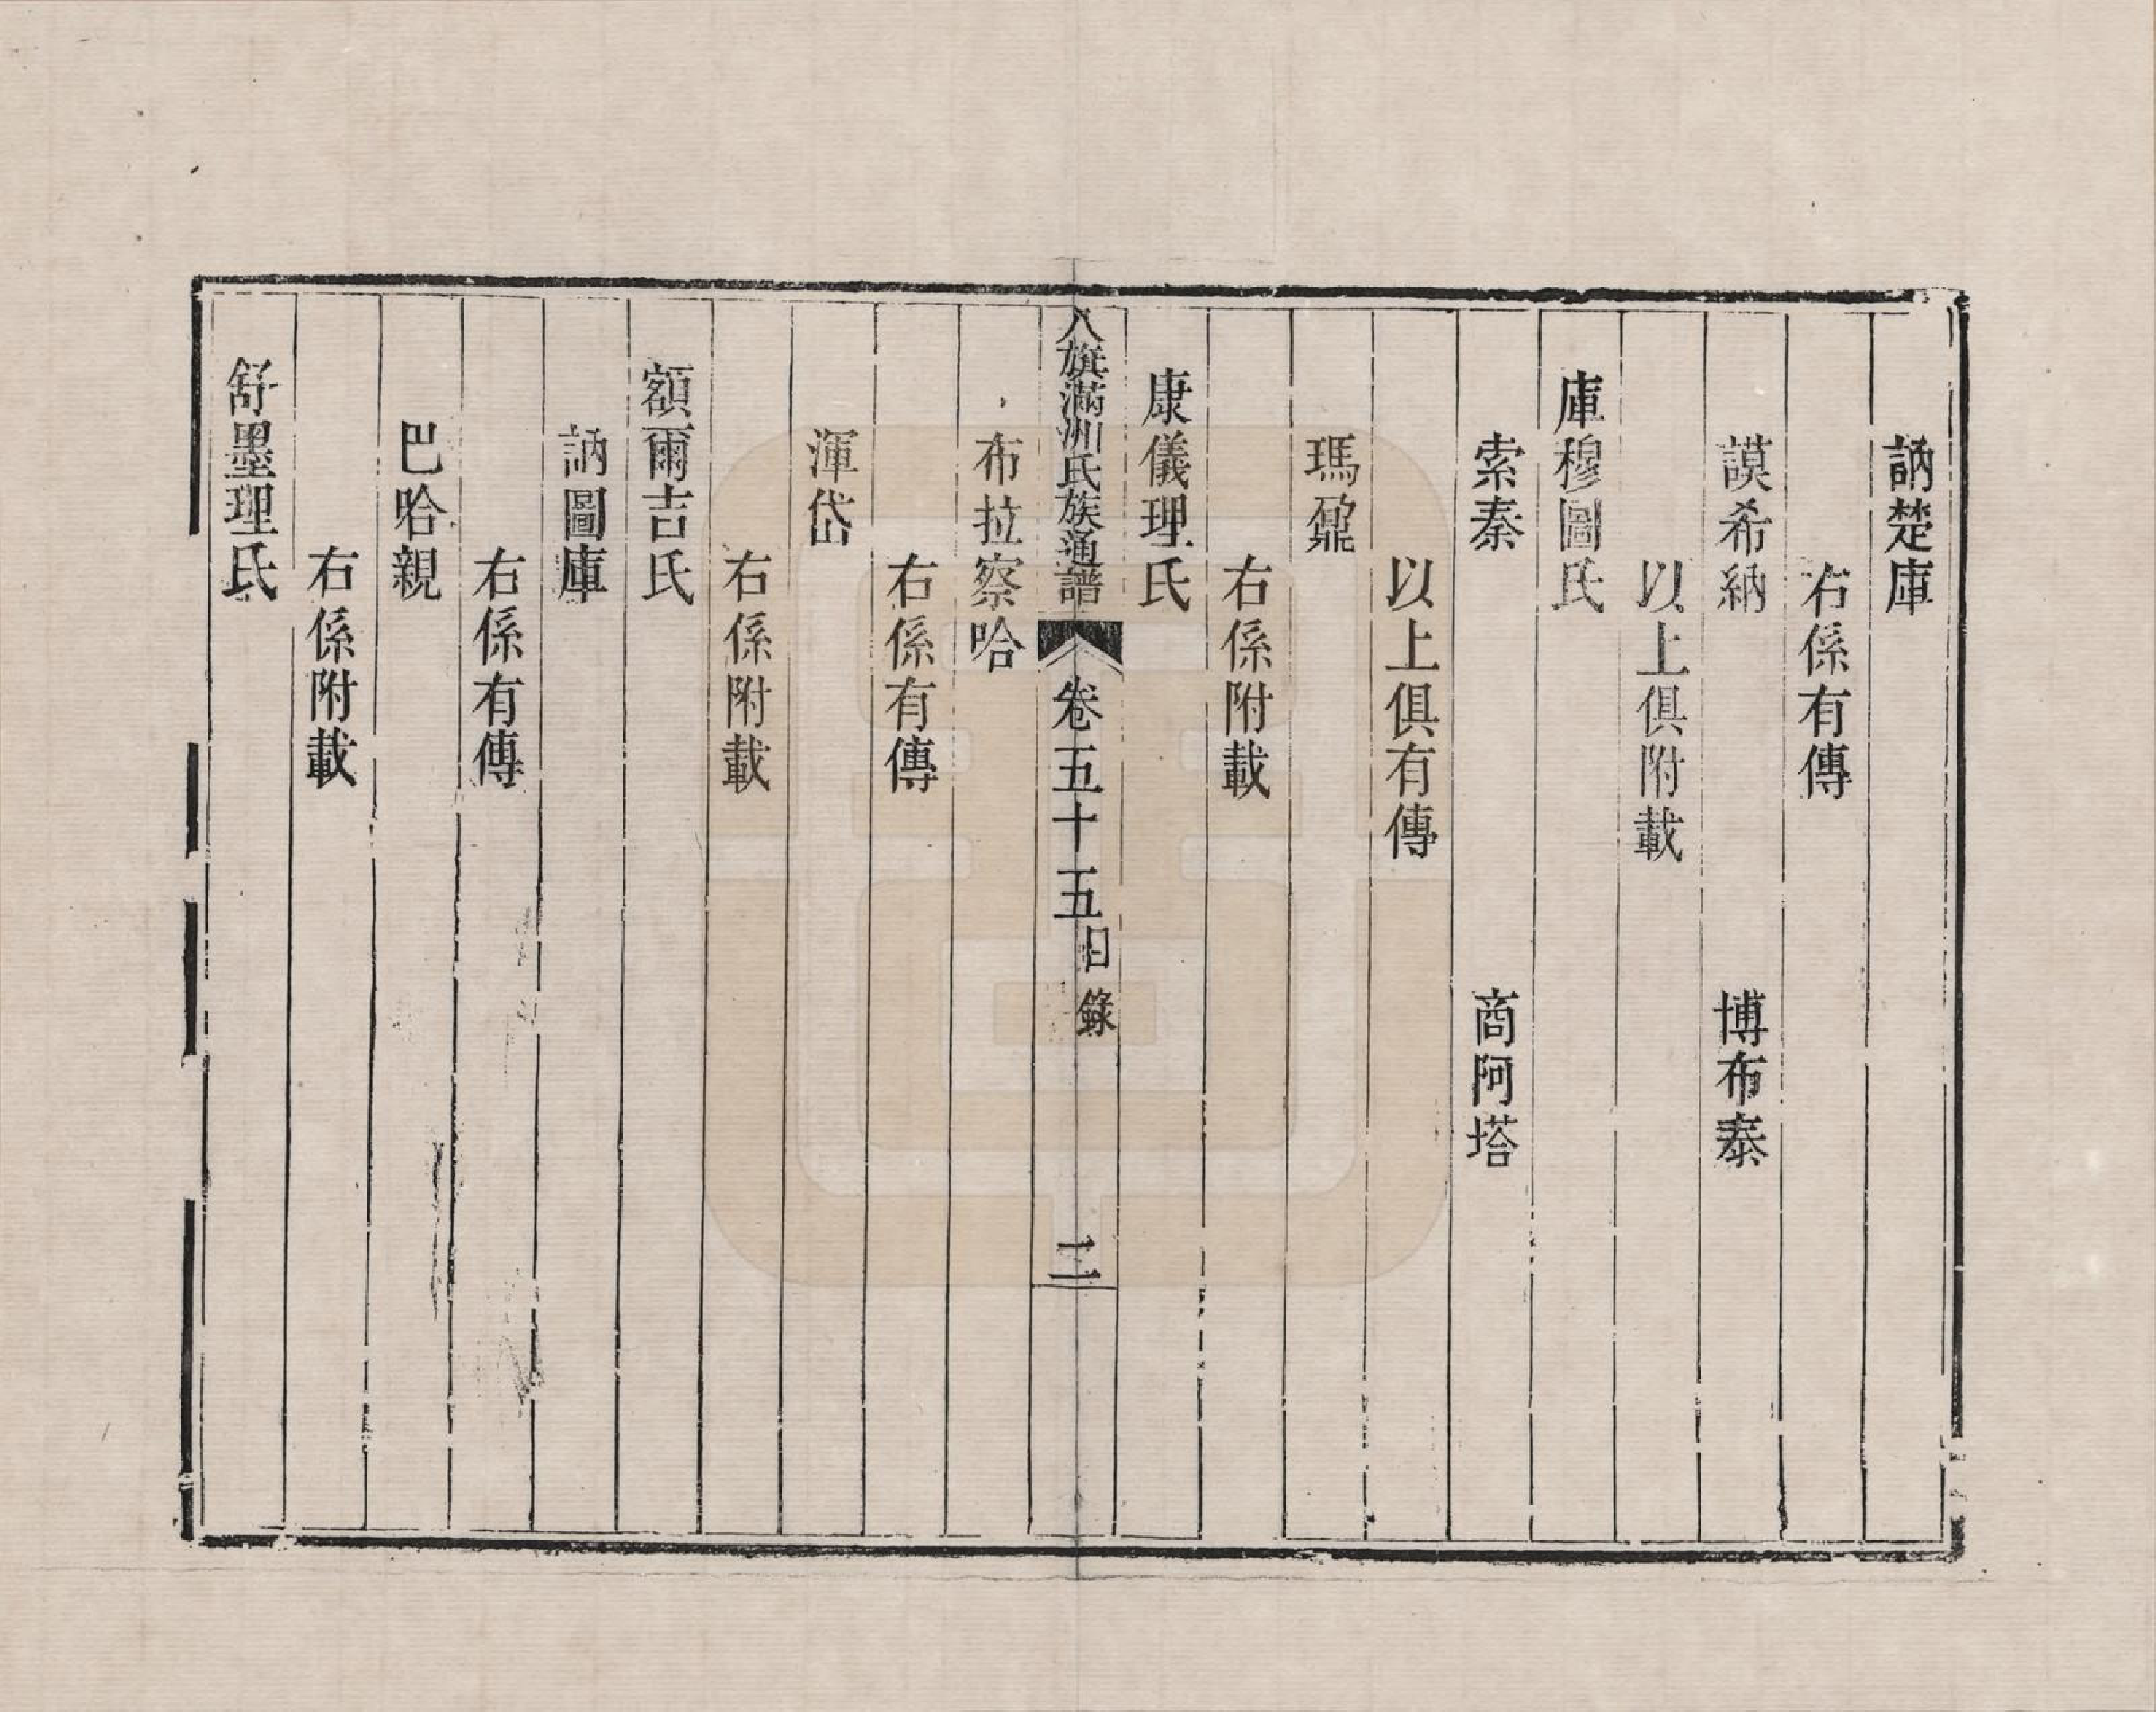 訥楚庫
右係有傳
謨希納　博布泰
以上俱附載
庫穆圖氏
索泰　商阿塔
以上俱有傳
瑪鼐
右係附載
康儀理氏
八旗滿洲氏族通譜　卷五十五目錄　二
布拉察哈
右係有傳
渾岱
右係附載
額爾吉氏
訥圖庫
右係有傳
巴哈親
右係附載
舒墨理氏